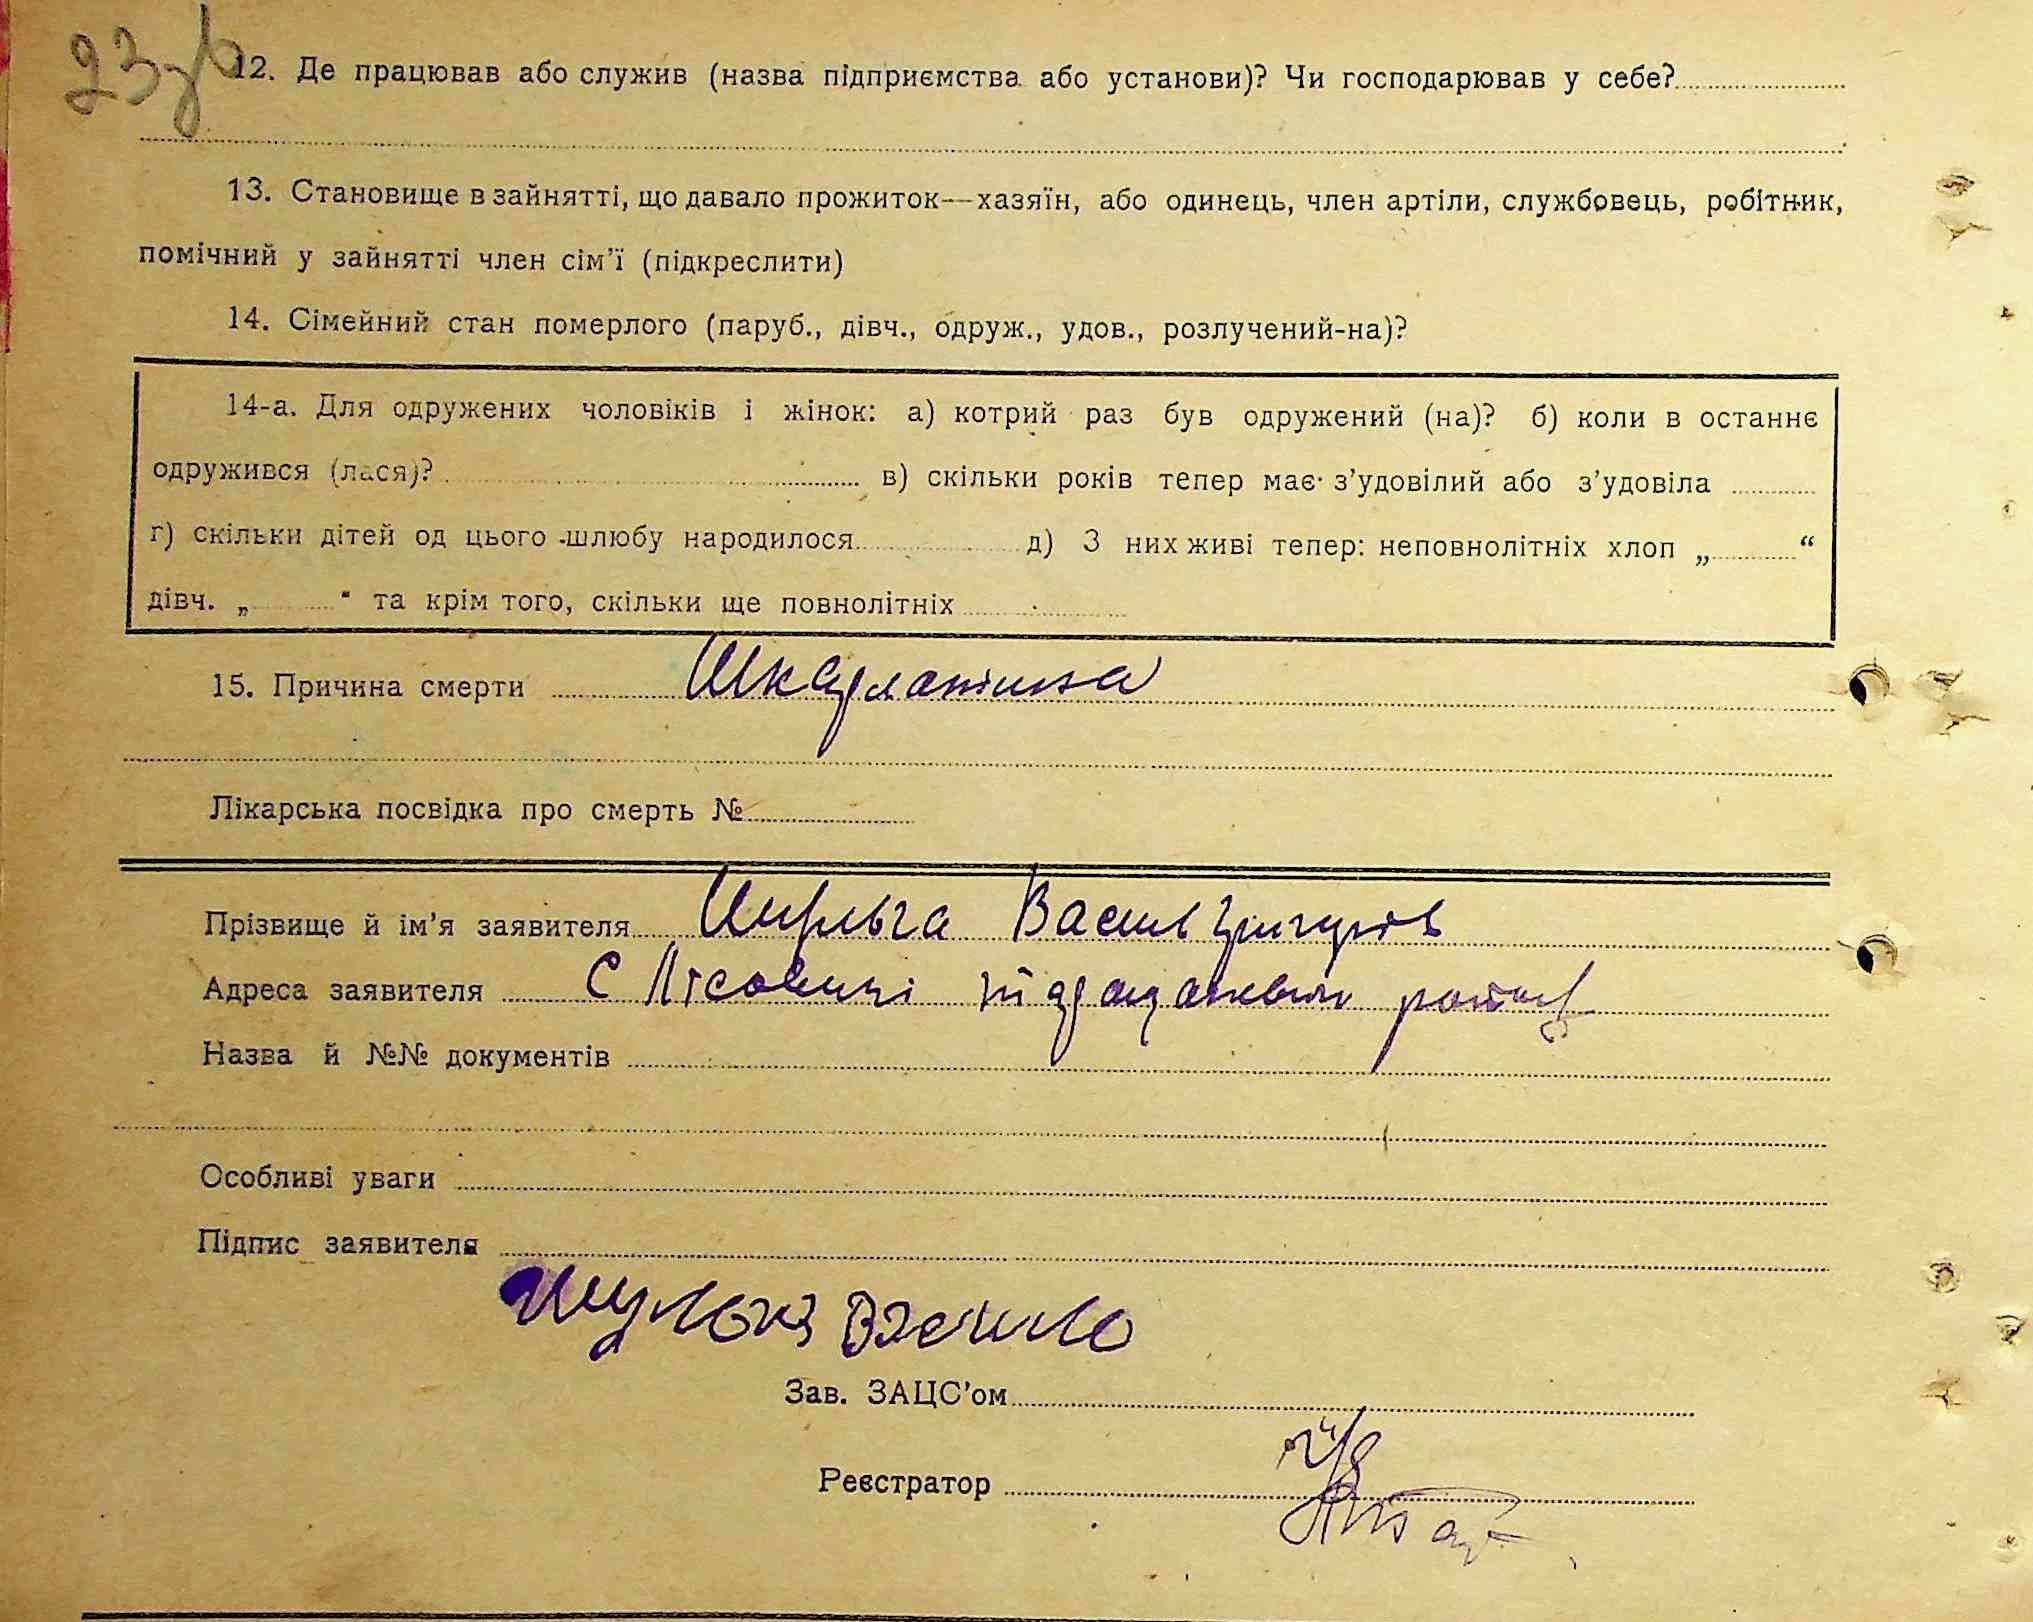 23зв
12. Де працював або служив (назва підприємства або установи)? Чи господарював у себе?
13. Становище в зайнятті, що давало прожиток—хазяїн, або одинець, член артіли, службовець, робітник,
помічний у зайнятті член сім'ї (підкреслити)
14. Сімейний стан померлого (паруб., дівч., одруж., удов., розлучений-на)?
14-а. Для одружених чоловіків і жінок: а) котрий раз був одружений (на)? б) коли в останнє
одружився (лася)? в) скільки років тепер має з'удовілий або з'удовіла
г) скільки дітей од цього шлюбу народилося д) З них живі тепер: неповнолітніх хлоп „ “
дівч. „ “ та крім того, скільки ще повнолітніх
15. Причина смерти Шкарлатина
Лікарська посвідка про смерть №
Прізвище й ім'я заявителя Шульга Василь
Адреса заявителя С Лісовичі
Назва й №№ документів
Особливі уваги
Підпис заявителя
Шульга Василь
Зав. ЗАЦС'ом
Реєстратор